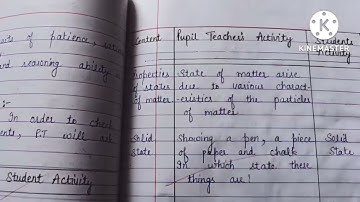 of patience,
and reasoning ability
:-
In order to check
P.T will ask
Student Activity
Content
Pupil Teacher's Activity
Students
Activity
Properties
of states
of matter
State of matter arise
due to various charact-
-eristics of the particles
of matter.
Solid
State
Showing a pen, a piece
of paper and chalk
In which state these
things are!
Solid
State
KINEMASTER